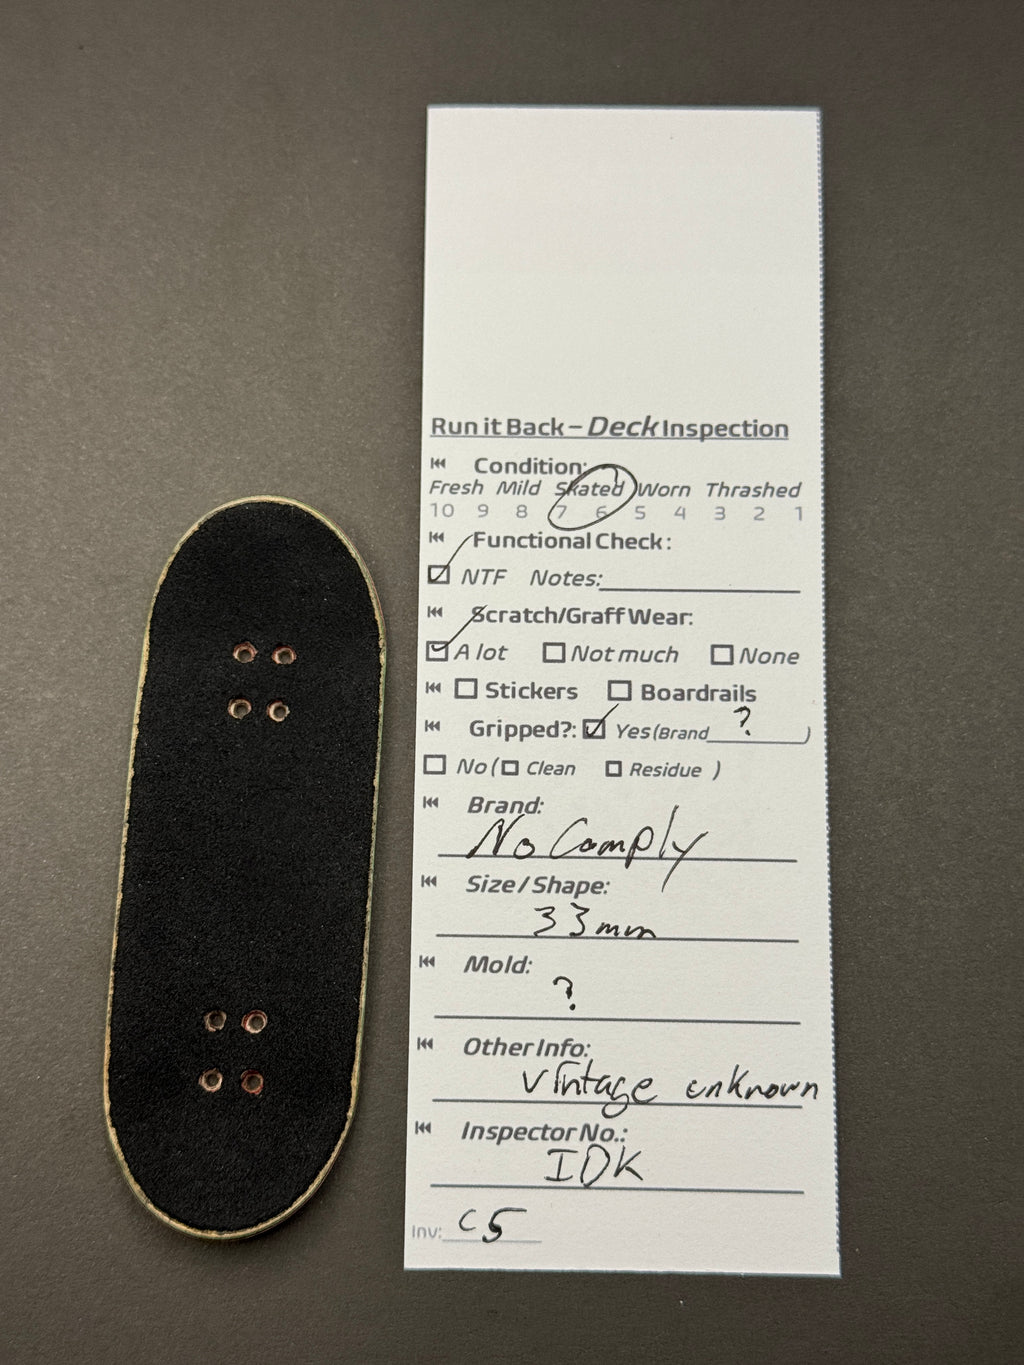 Run it Back – Deck Inspection
Condition:
Fresh Mild Skated Worn Thrashed
10 9 8 7 6 5 4 3 2 1
Functional Check:
NTF Notes:
Scratch/Graff Wear:
A lot Not much None
Stickers Boardrails
Gripped?: Yes (Brand ? )
No ( Clean Residue )
Brand:
No Comply
Size / Shape:
33mm
Mold:
?
Other Info:
vintage unknown
Inspector No.:
IDK
Inv: C5